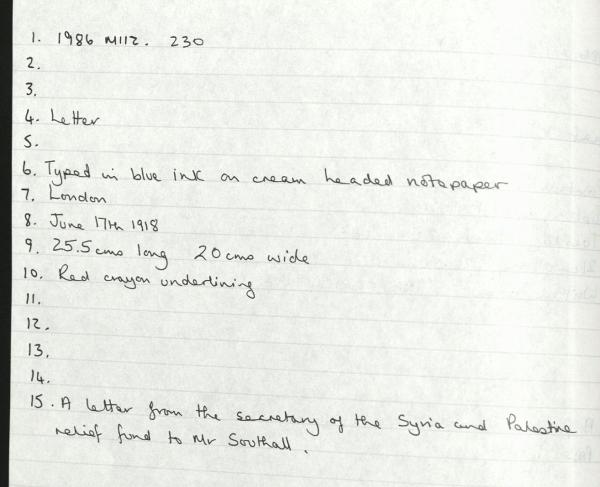 1. 1986 M112. 230
2.
3.
4. Letter
5.
6. Typed in blue ink on cream headed notepaper
7. London
8. June 17th 1918
9. 25.5cms long 20cms wide
10. Red crayon underlining
11.
12.
13.
14.
15. A letter from the secretary of the Syria and Palestine
relief fund to Mr Southall.